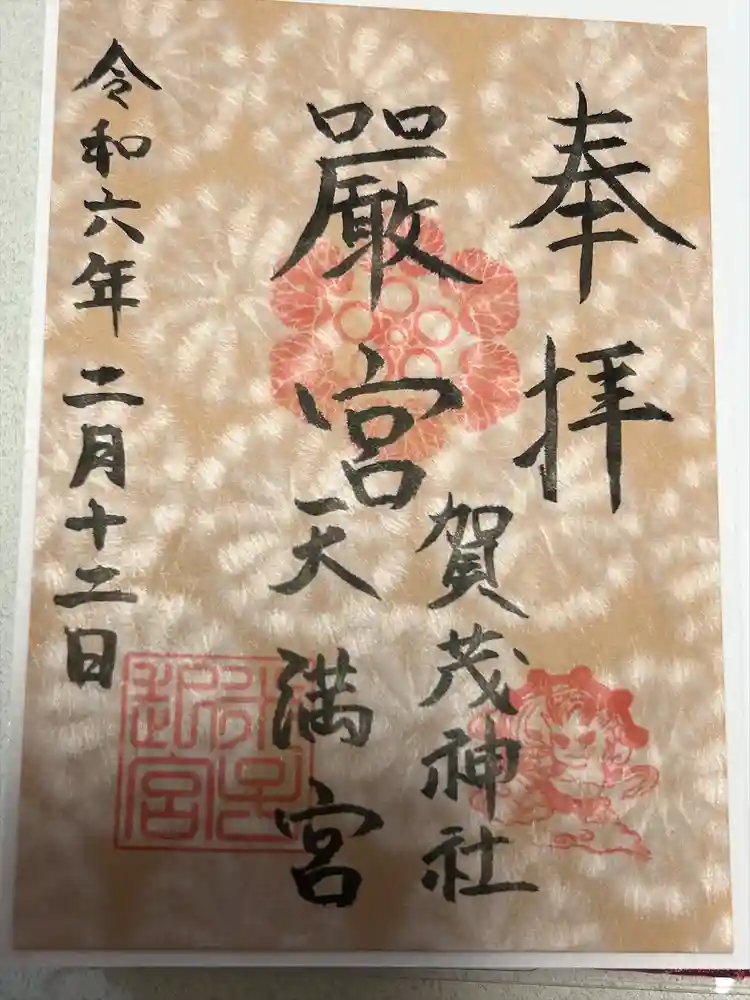 奉拝
嚴宮
賀茂神社
天満宮
令和六年二月十二日